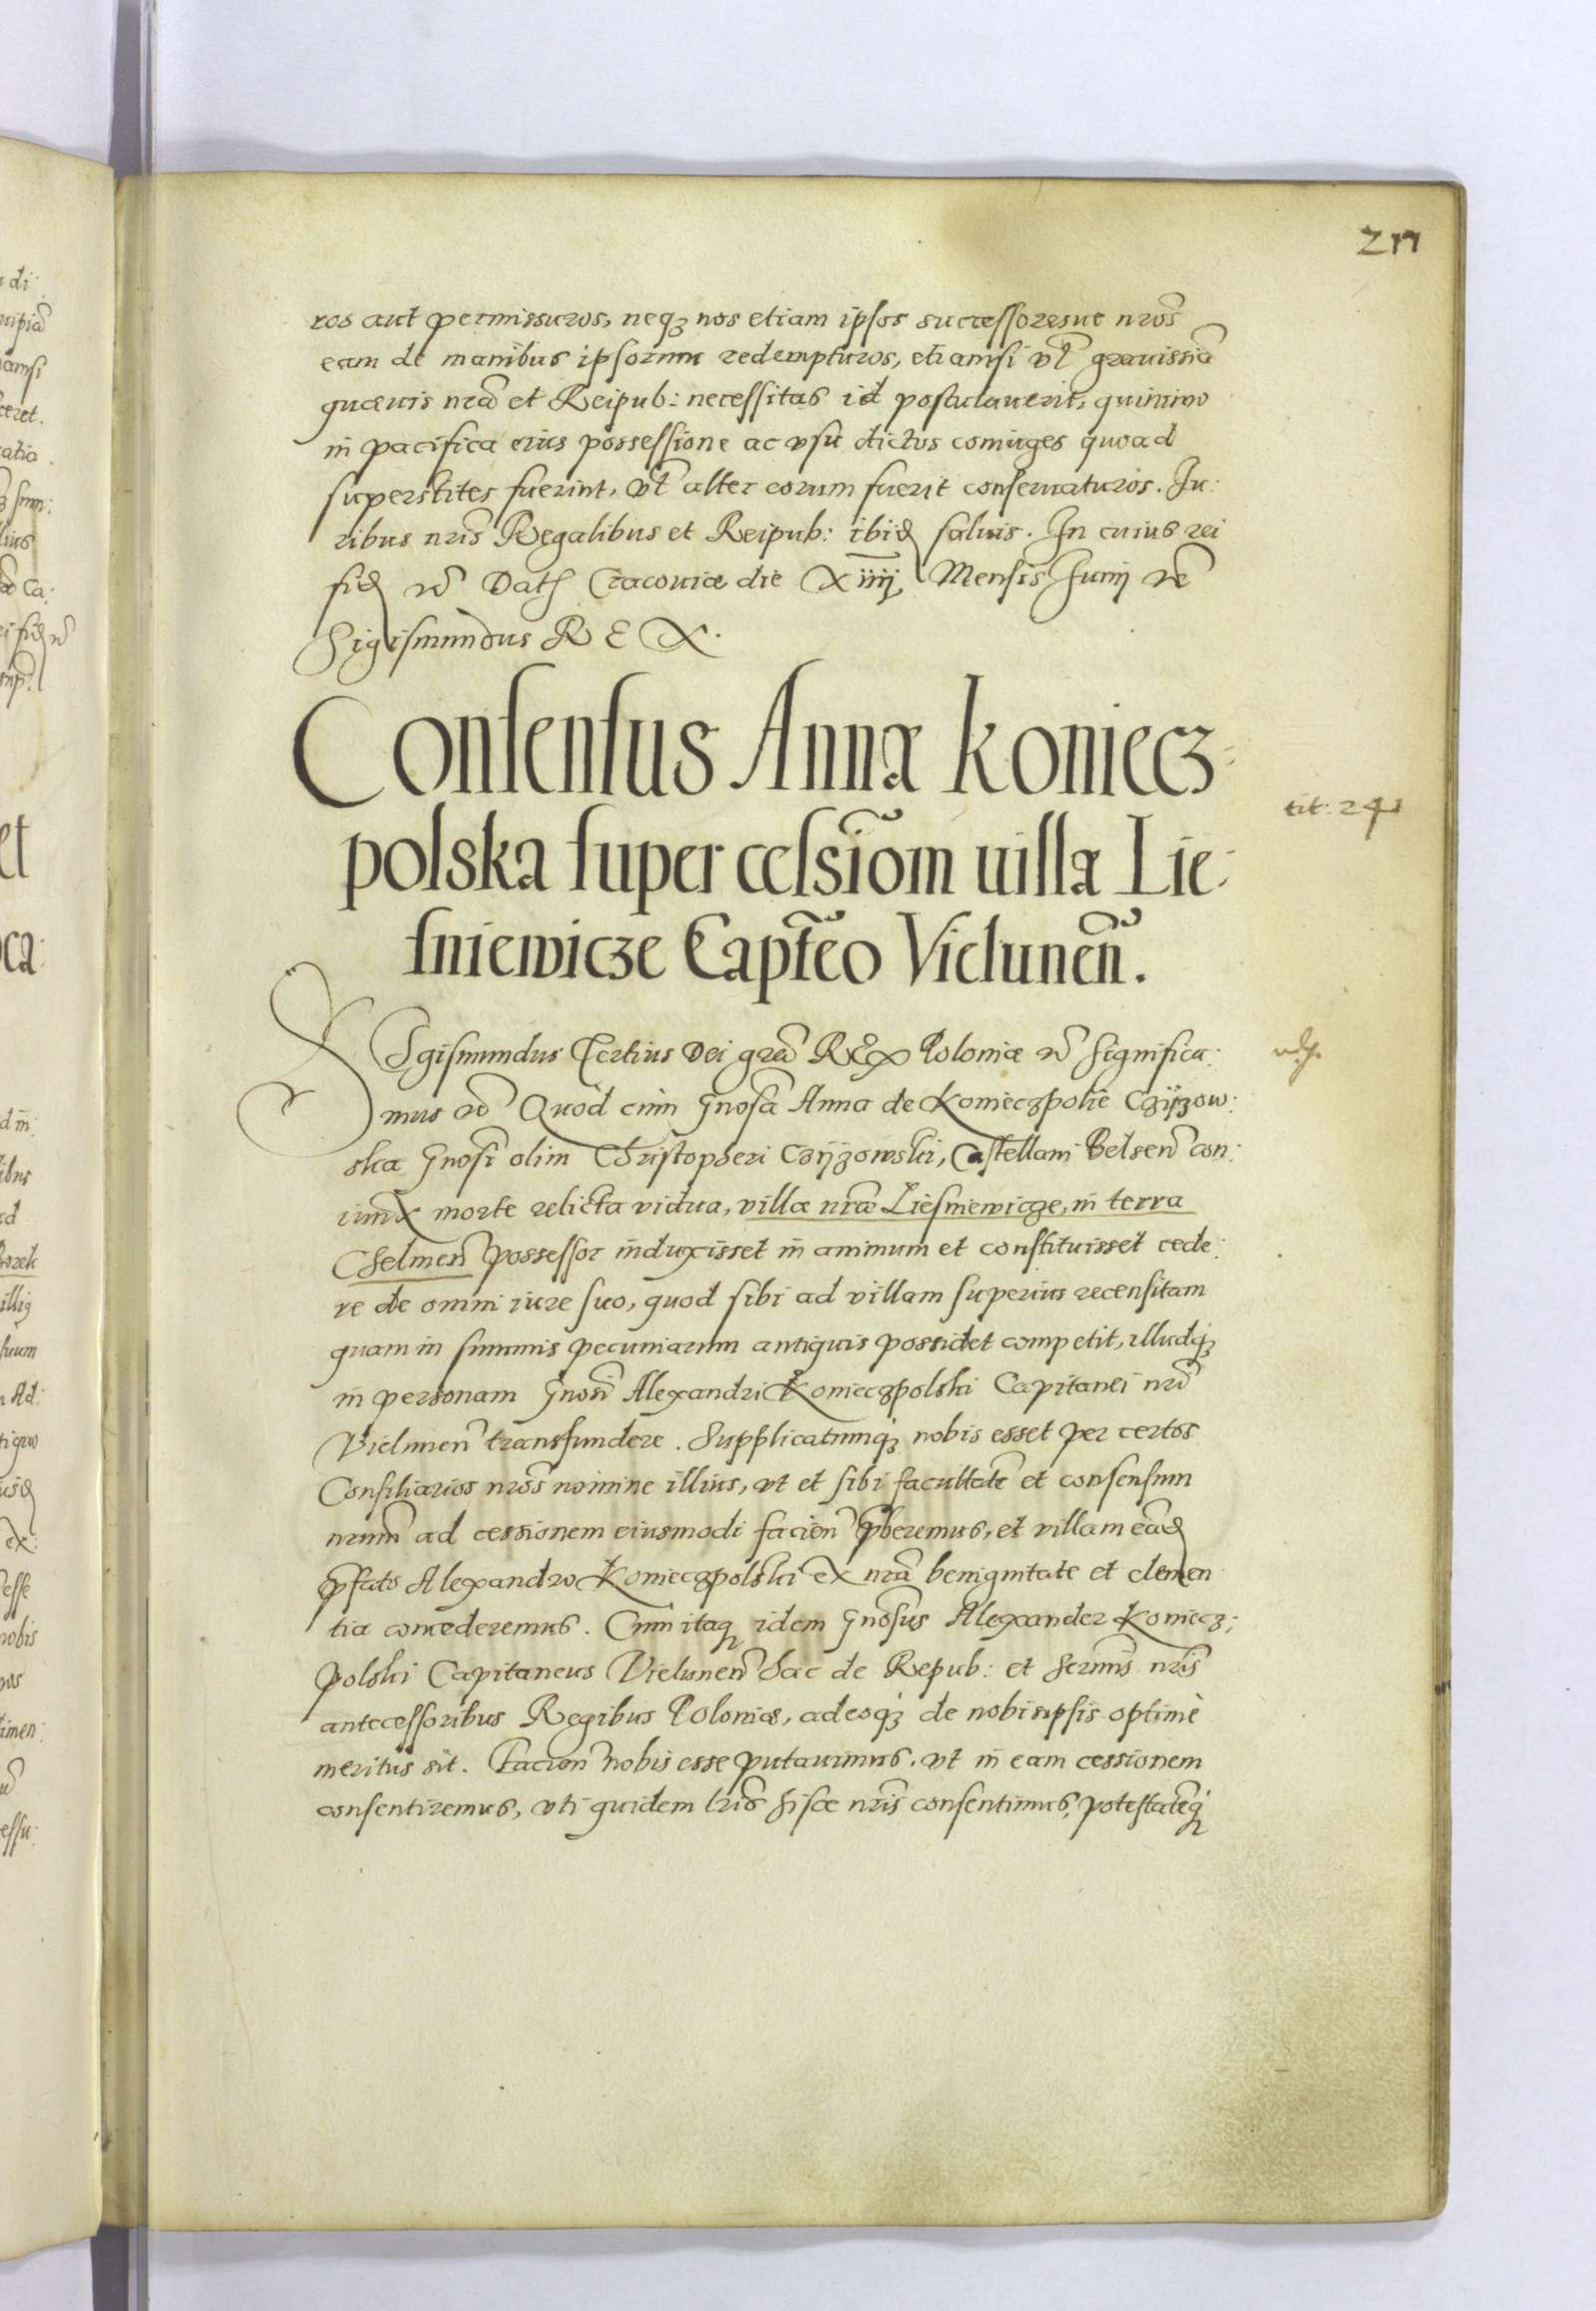 211
ros aut permissuros, neq3 nos etiam ipsos successoresue nros
eam de manibus ipsorum redempturos, etiamsi vl grauissia
quæuis nra et Reipub: necessitas id postulauerit, quinimo
in pacifica eius possessione ac vsu dictos coniuges quoad
superstites fuerint, vl alter eorum fuerit conseruaturos. Iu:
ribus nris Regalibus et Reipub: ibid saluis. In cuius rei
fid etc Dat Cracouiæ die Xiiij Mensis Junij etc
Sigismundus REX.
Consensus Annæ Koniecz:
polska super cessiom uillæ Lie:
sniewicze Capteo Vielunen.
tit: 241
Sigismundus Tertius Dei gra REX Poloniæ etc Significa:
mus etc Quod cum Gnosa Anna de Konieczpolie Czyżow:
ska Gnosi olim Christopheri Czyżowski, Castellani Belsen con:
iunx morte relicta vidua, villæ nræ Liesniewicze, in terra
Chelmen possessor induxisset in animum et constituisset cede:
re de omni iure suo, quod sibi ad villam superius recensitam
quam in summis pecuniarum antiquis possidet competit, illudq3
in personam Gnosi Alexandri Konieczpolski Capitanei nri
Vielunen transfundere. Supplicatumq3 nobis esset per certos
Consiliarios nros nomine illius, vt et sibi facultate et consensum
nrum ad cessionem eiusmodi facien pberemus, et villam ead
pfato Alexandro Konieczpolski ex nra benignitate et clemen
tia concederemus. Cum itaq idem Gnosus Alexander Koniecz:
polski Capitaneus Vielunen hac de Repub: et Sermis nris
antecessoribus Regibus Poloniæ, adeoq3 de nobisipsis optimè
meritus sit. Facien nobis esse putauimus, vt in eam cessionem
consentiremus, vti quidem lris hisce nris consentimus, potestateq